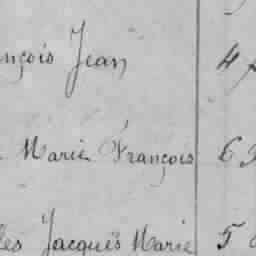 nçois Jean 4
Marie François 6
les Jacques Marie 5